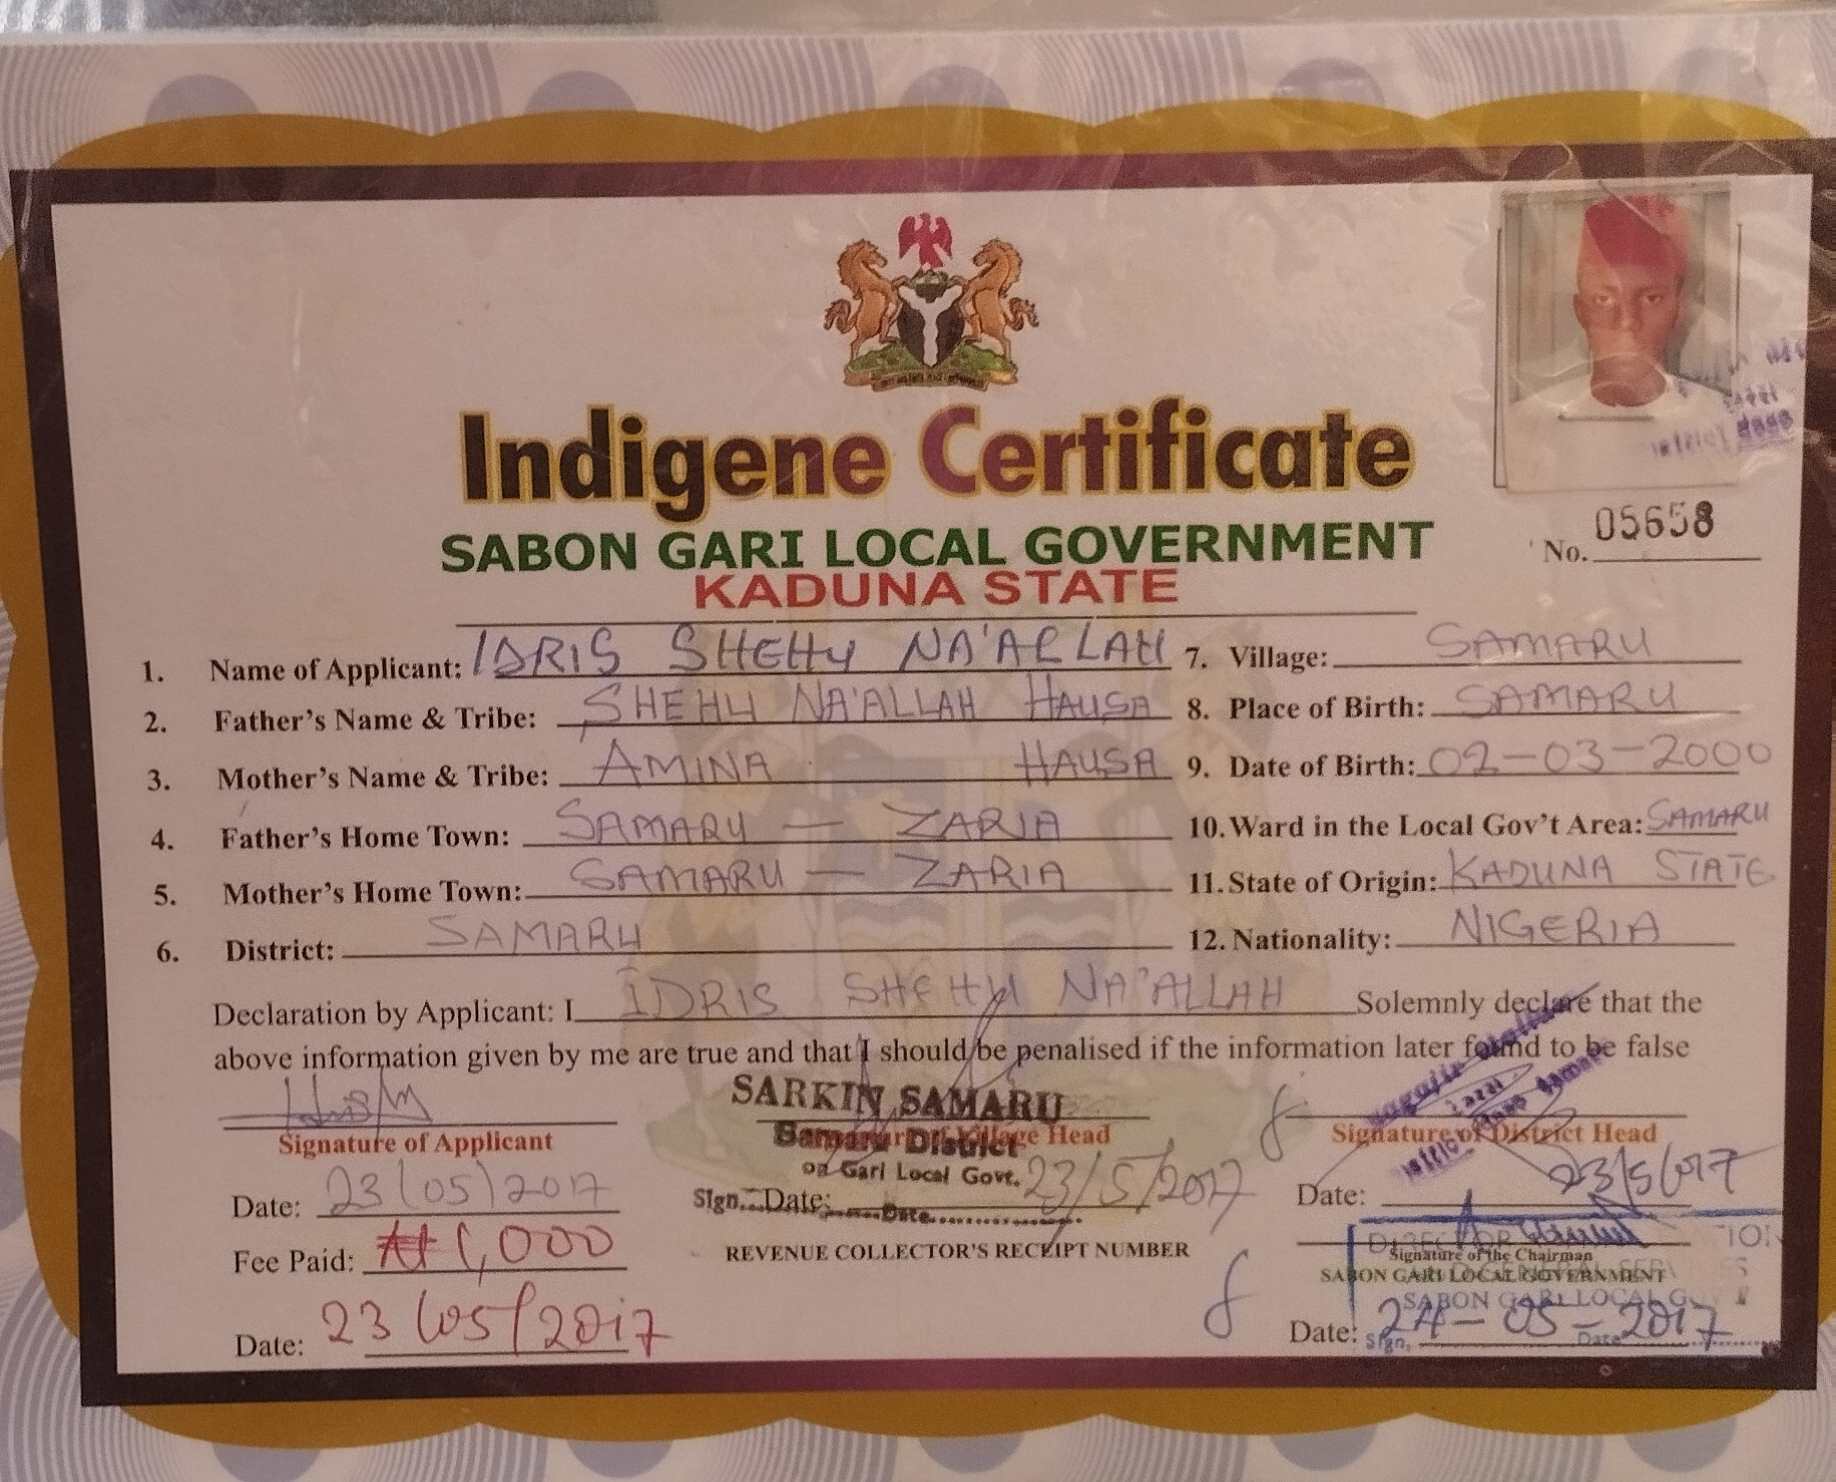 Indigene Certificate
SABON GARI LOCAL GOVERNMENT
KADUNA STATE
No. 05658
1. Name of Applicant: IDRIS SHEHU NA'ALLAH
2. Father's Name & Tribe: SHEHU NA'ALLAH HAUSA
3. Mother's Name & Tribe: AMINA HAUSA
4. Father's Home Town: SAMARU — ZARIA
5. Mother's Home Town: SAMARU — ZARIA
6. District: SAMARU
7. Village: SAMARU
8. Place of Birth: SAMARU
9. Date of Birth: 02-03-2000
10. Ward in the Local Gov't Area: SAMARU
11. State of Origin: KADUNA STATE
12. Nationality: NIGERIA
Declaration by Applicant: I IDRIS SHEHU NA'ALLAH Solemnly declare that the
above information given by me are true and that I should be penalised if the information later found to be false
Signature of Applicant
Date: 23/05/2017
Fee Paid: ₦1,000
Date: 23/05/2017
SARKIN SAMARU
Samaru District
Village Head
on Gari Local Govt.
Sign... Date: 23/5/2017
Date
REVENUE COLLECTOR'S RECEIPT NUMBER
Signature of District Head
Date: 23/5/017
DIRECTOR
Signature of the Chairman
SABON GARI LOCAL GOVERNMENT
SABON GARI LOCAL
Date: 24-05-2017
Sign. Date